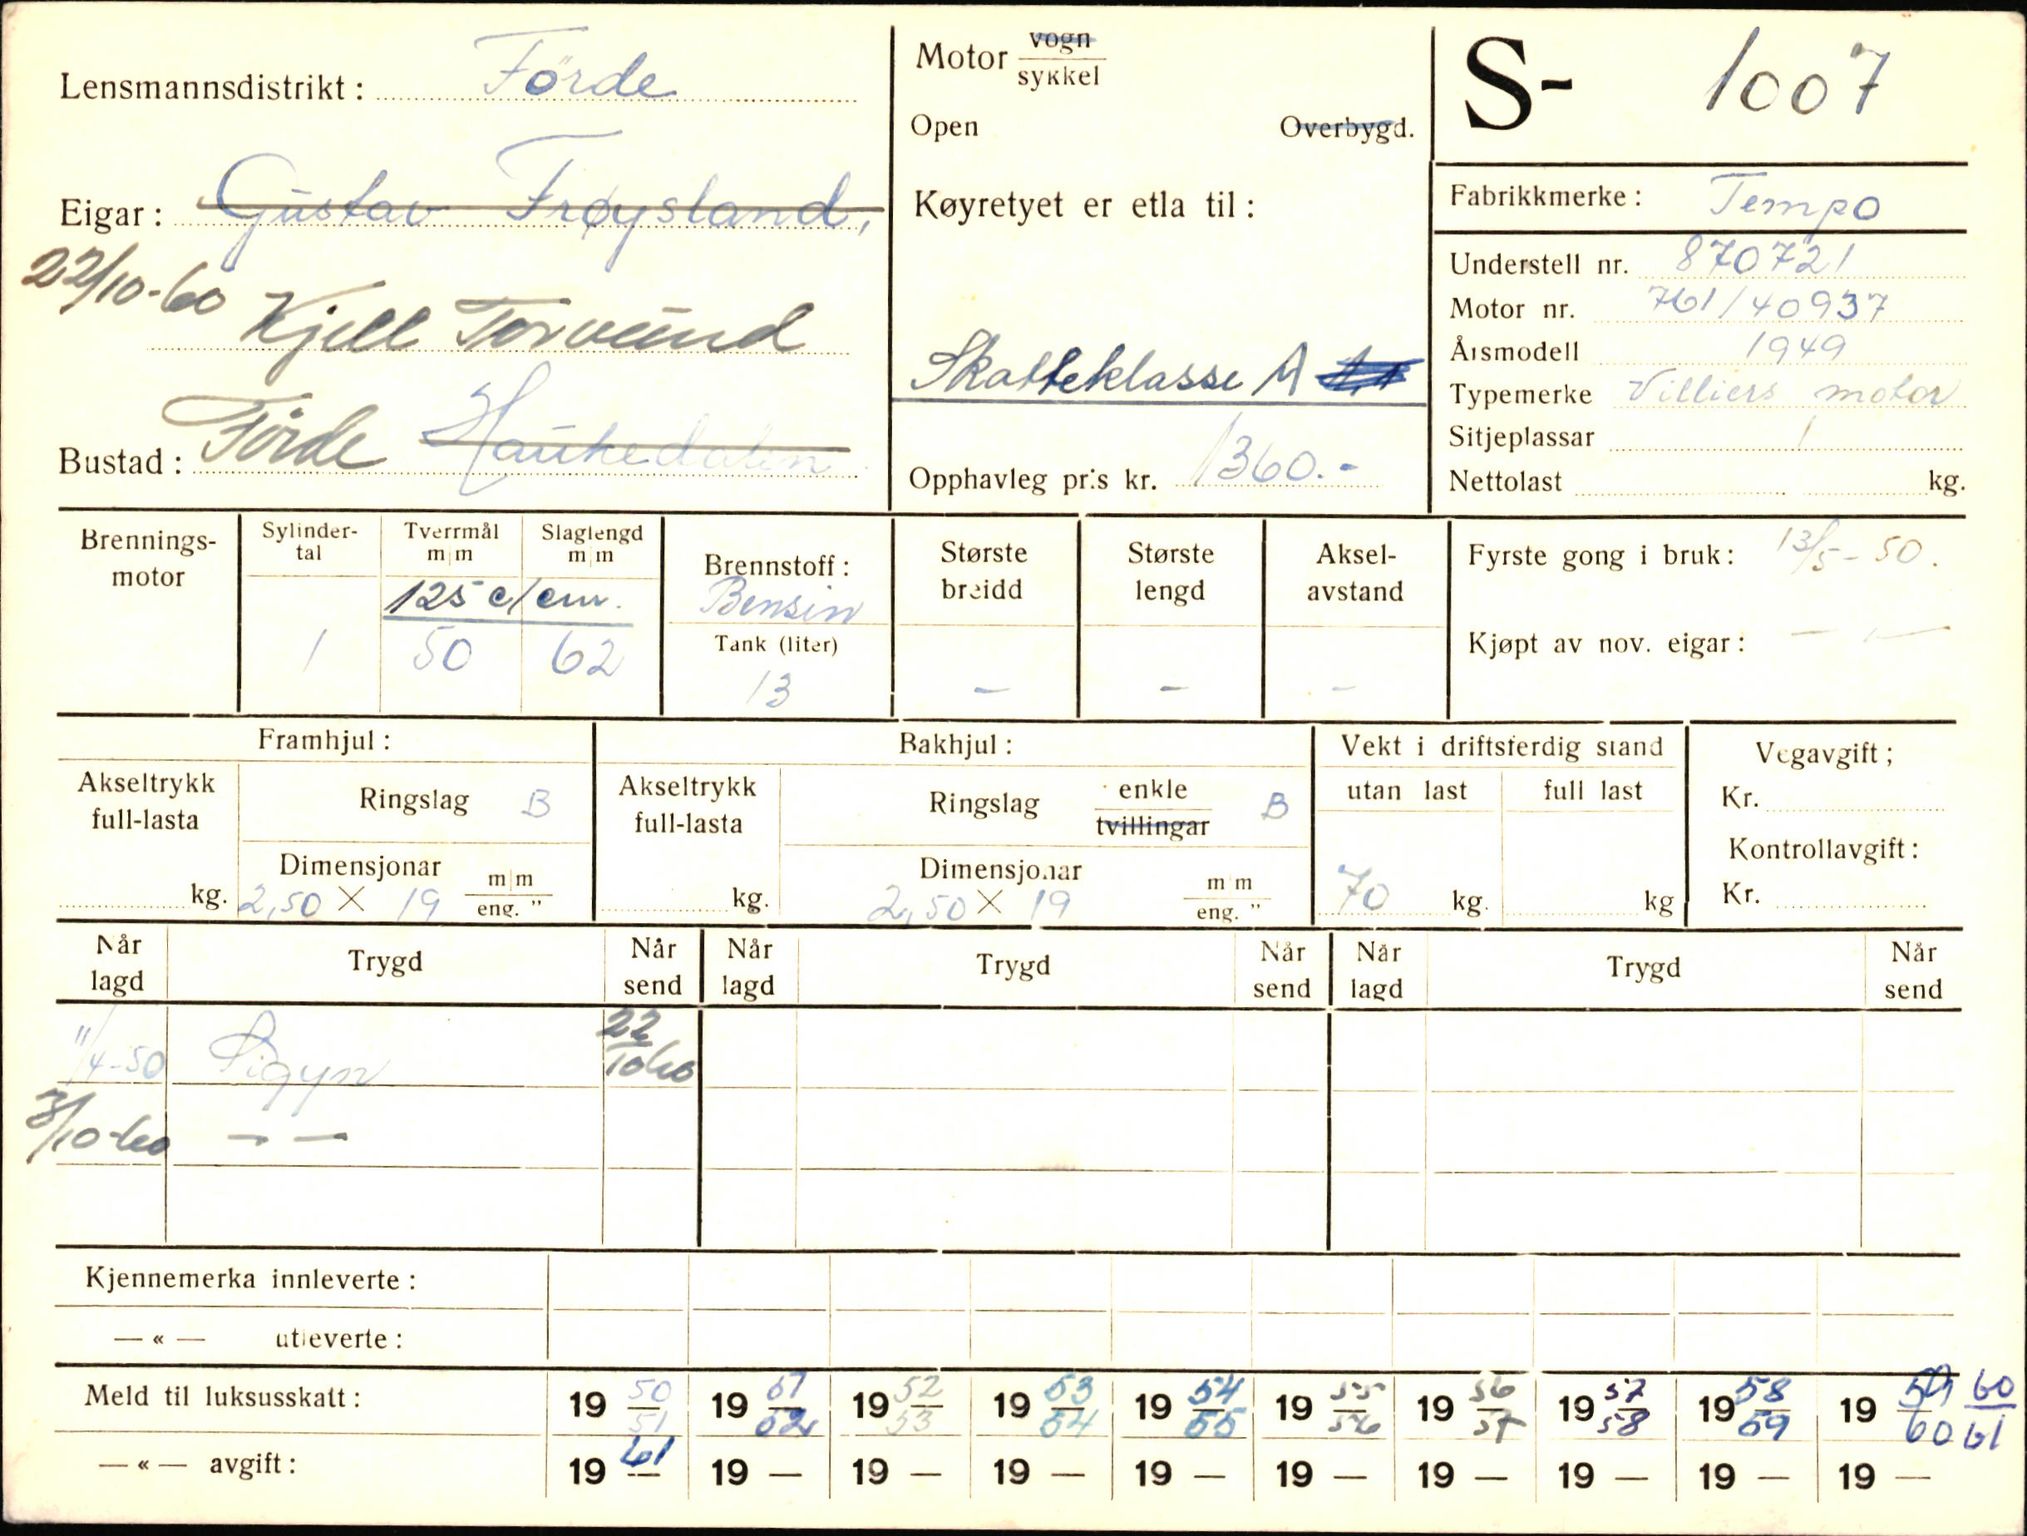 Lensmannsdistrikt: Förde
Eigar: Gustav Frøysland,
22/10-60 Kjell Torvund
Bustad: Førde Haukedalen
Motor vogn
sykkel
Open Overbygd.
Køyretyet er etla til:
Skatteklasse A
Opphavleg pris kr. 1360.-
S- 1007
Fabrikkmerke: Tempo
Understell nr. 870721
Motor nr. 761/40937
Årsmodell 1949
Typemerke Villiers motor
Sitjeplassar 1
Nettolast kg.
Brennings-
motor
Sylinder-
tal
1
Tverrmål
m/m
Slaglengd
m/m
125 c/cm.
50 62
Brennstoff:
Bensin
Tank (liter)
13
Største
breidd
-
Største
lengd
-
Aksel-
avstand
-
Fyrste gong i bruk: 13/5-50.
Kjøpt av nov. eigar: — " —
Framhjul:
Akseltrykk
full-lasta
kg.
Ringslag B
Dimensjonar
2,50 X 19 m/m
eng. "
Bakhjul:
Akseltrykk
full-lasta
kg.
Ringslag enkle
tvillingar B
Dimensjonar
2,50 X 19 m/m
eng. "
Vekt i driftsferdig stand
utan last full last
70 kg. kg
Vegavgift;
Kr.
Kontrollavgift:
Kr.
Når
lagd Trygd Når
send Når
lagd Trygd Når
send Når
lagd Trygd Når
send
11/4-50 Sigyn 22/10 60
3/10-60 — —
Kjennemerka innleverte:
— « — utleverte:
Meld til luksusskatt: 19 50/51 19 51/52 19 52/53 19 53/54 19 54/55 19 55/56 19 56/57 19 57/58 19 58/59 19 59/60 60/61
— « — avgift: 19 — 61 19 — 19 — 19 — 19 — 19 — 19 — 19 — 19 — 19 —